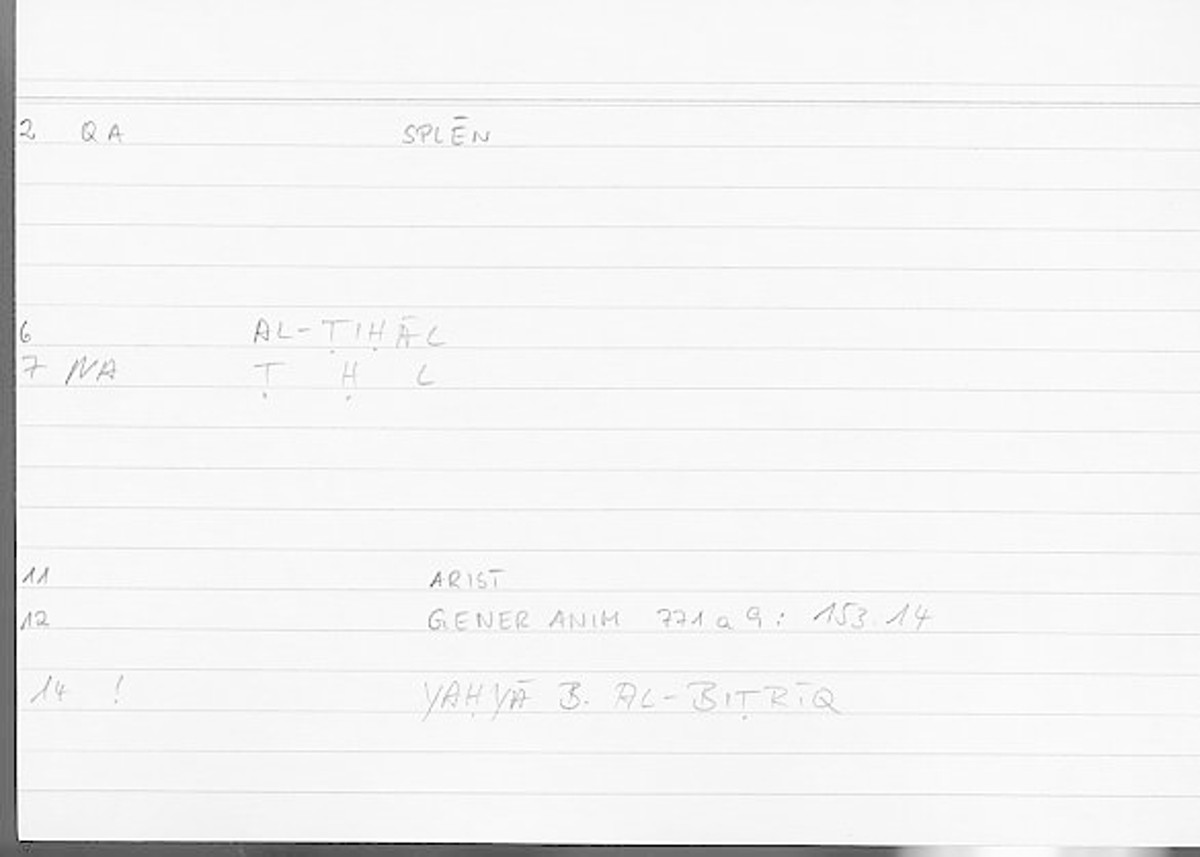 2 QA SPLĒN
6 AL-ṬIḤĀL
7 NA Ṭ Ḥ L
11 ARIST
12 GENER ANIM 771 a 9 : 153.14
14 ! YAḤYĀ B. AL-BIṬRĪQ